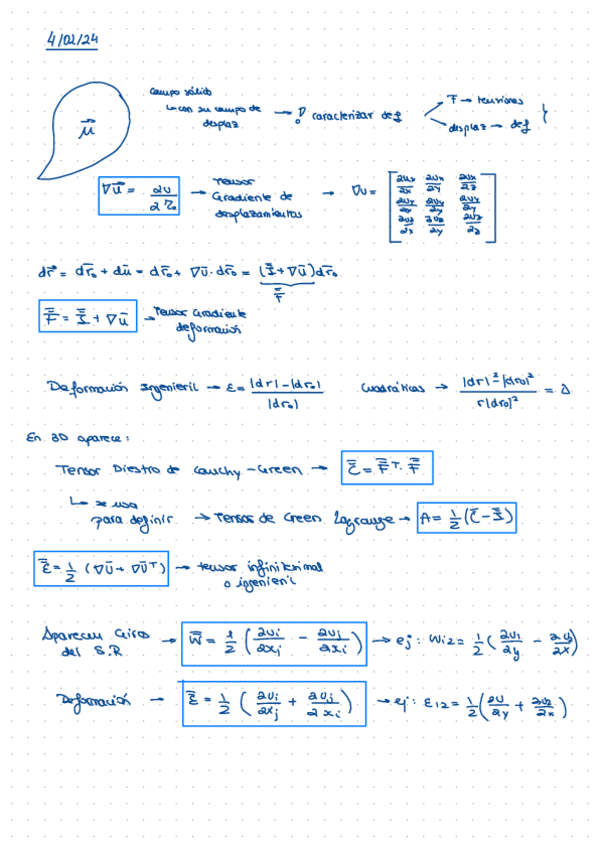 4/02/24
campo sólido
↳ con su campo de desplaz → caracterizar def
F → tensiones
desplaz → def
$\vec{u}$
$\nabla\vec{u} = \frac{\partial u}{\partial r_0}$ → Tensor Gradiente de desplazamientos → $\nabla u = \begin{bmatrix} \frac{\partial u_x}{\partial x} & \frac{\partial u_x}{\partial y} & \frac{\partial u_x}{\partial z} \\ \frac{\partial u_y}{\partial x} & \frac{\partial u_y}{\partial y} & \frac{\partial u_y}{\partial z} \\ \frac{\partial u_z}{\partial x} & \frac{\partial u_z}{\partial y} & \frac{\partial u_z}{\partial z} \end{bmatrix}$
$d\vec{r} = d\bar{r}_0 + d\bar{u} = d\bar{r}_0 + \nabla\bar{u} \cdot d\bar{r}_0 = \underbrace{(\bar{\bar{I}} + \nabla\bar{u})}_{\bar{\bar{F}}} d\bar{r}_0$
$\bar{\bar{F}} = \bar{\bar{I}} + \nabla\bar{u}$ → Tensor Gradiente deformación
Deformación Ingenieril → $\varepsilon = \frac{|dr| - |dr_0|}{|dr_0|}$ Cuadráticas → $\frac{|dr|^2 - |dr_0|^2}{r|dr_0|^2} = \Delta$
En 3D aparece:
Tensor Diestro de Cauchy-Green → $\bar{\bar{C}} = \bar{\bar{F}}^T \cdot \bar{\bar{F}}$
↳ se usa para definir → Tensor de Green Lagrange → $A = \frac{1}{2}(\bar{\bar{C}} - \bar{\bar{I}})$
$\bar{\bar{\varepsilon}} = \frac{1}{2}(\nabla\bar{u} + \nabla\bar{u}^T)$ → tensor infinitesimal o igenieril
Aparecen Giros del S.R → $\bar{\bar{W}} = \frac{1}{2}\left(\frac{\partial u_i}{\partial x_j} - \frac{\partial u_j}{\partial x_i}\right)$ → ej: $W_{12} = \frac{1}{2}\left(\frac{\partial u_1}{\partial y} - \frac{\partial u_2}{\partial x}\right)$
Deformación → $\bar{\bar{\varepsilon}} = \frac{1}{2}\left(\frac{\partial u_i}{\partial x_j} + \frac{\partial u_j}{\partial x_i}\right)$ → ej: $\varepsilon_{12} = \frac{1}{2}\left(\frac{\partial u}{\partial y} + \frac{\partial u_2}{\partial x}\right)$